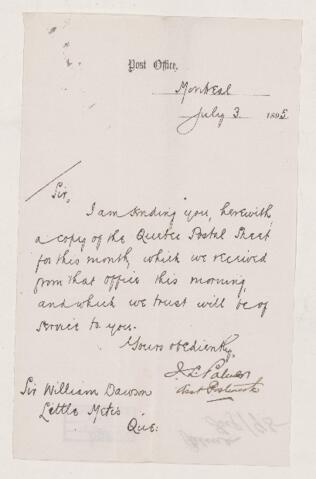 Post Office,
Montreal
July 3 1895
Sir,
I am sending you, herewith,
a copy of the Quebec Postal Sheet
for this month, which we received
from that office this morning,
and which we trust will be of
service to you.
Yours obediently,
Palmer
Asst Postmaster
Sir William Dawson
Little Metis
Que: